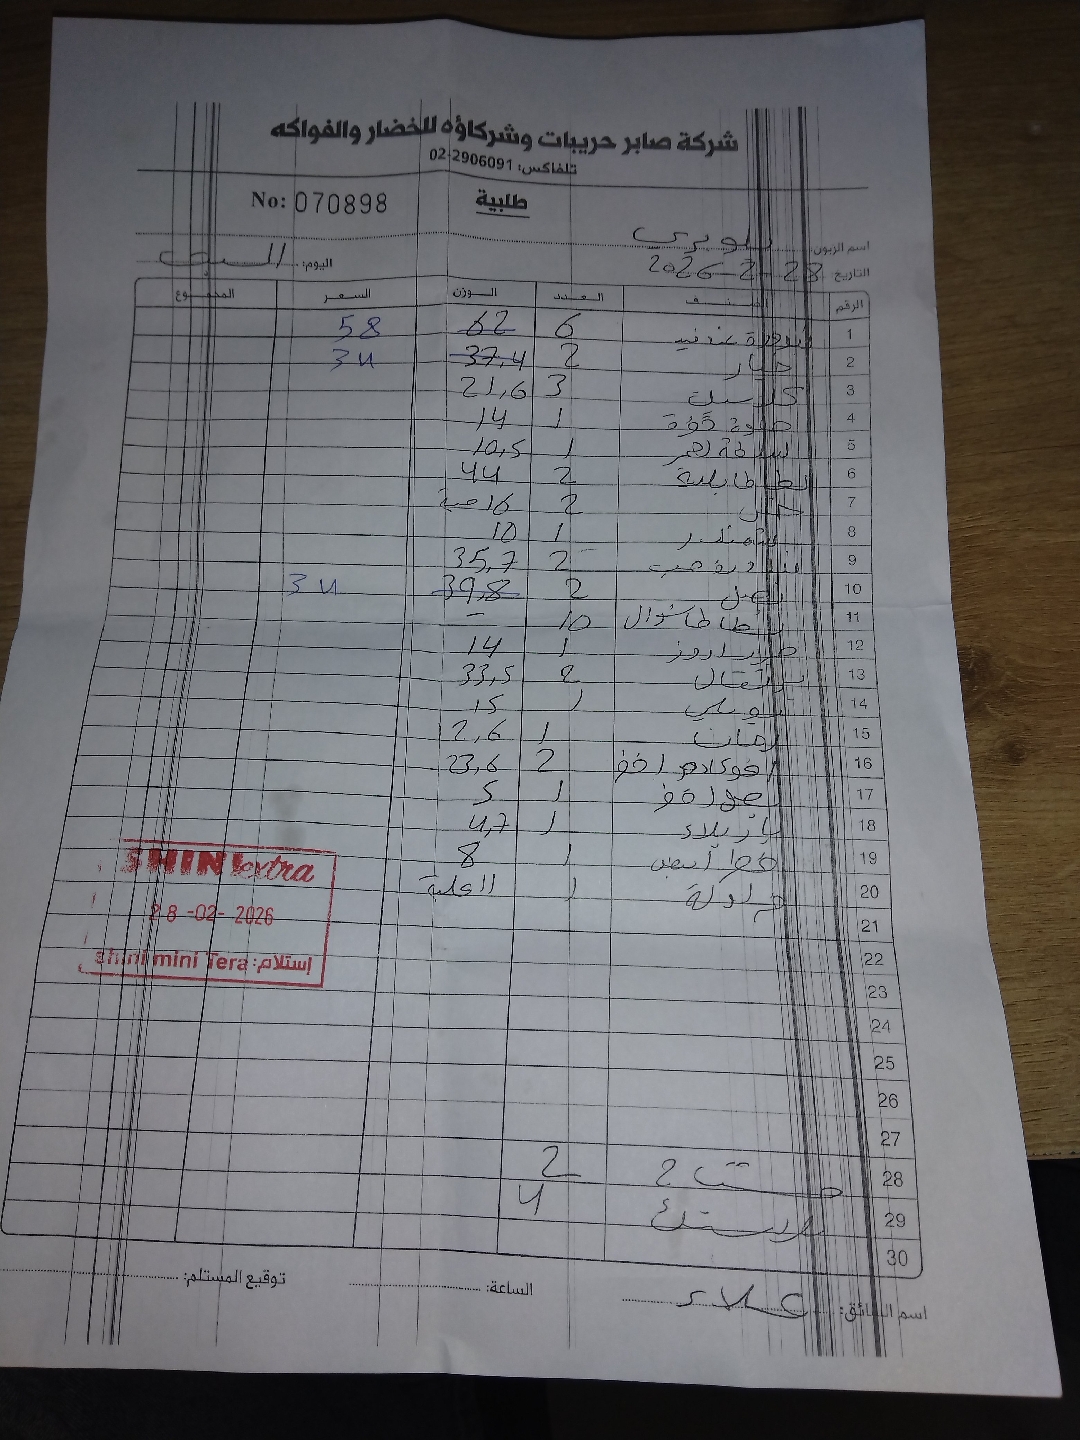 شركة صابر حريبات وشركاؤه للخضار والفواكه
تلفاكس: 02-2906091
طلبية No: 070898
اسم الزبون:
اليوم: السبت
التاريخ: 28-2-2026
الرقم الصنف العدد الوزن السعر المجموع
1 بندورة عنقود 6 62 58
2 خيار 2 37,4 34
3 3 21,6
4 1 14
5 1 10,5
6 بطاطا 2 44
7 خس 2 16 حبة
8 شمندر 1 10
9 2 35,7
10 بصل 2 39,8 34
11 بطاطا شوال 10 -
12 1 14
13 برتقال 2 33,5
14 بوملي 1 15
15 رمان 1 2,6
16 2 23,6
17 1 5
18 بازيلاء 1 4,7
19 ابيض 1 8
20 فراولة 1
21
22
23
24
25
26
27
28 2
29 بلاستيك 4
30
SHINI extra
28-02-2026
إستلام: Shini mini Tera
اسم السائق: علاء
الساعة:
توقيع المستلم: